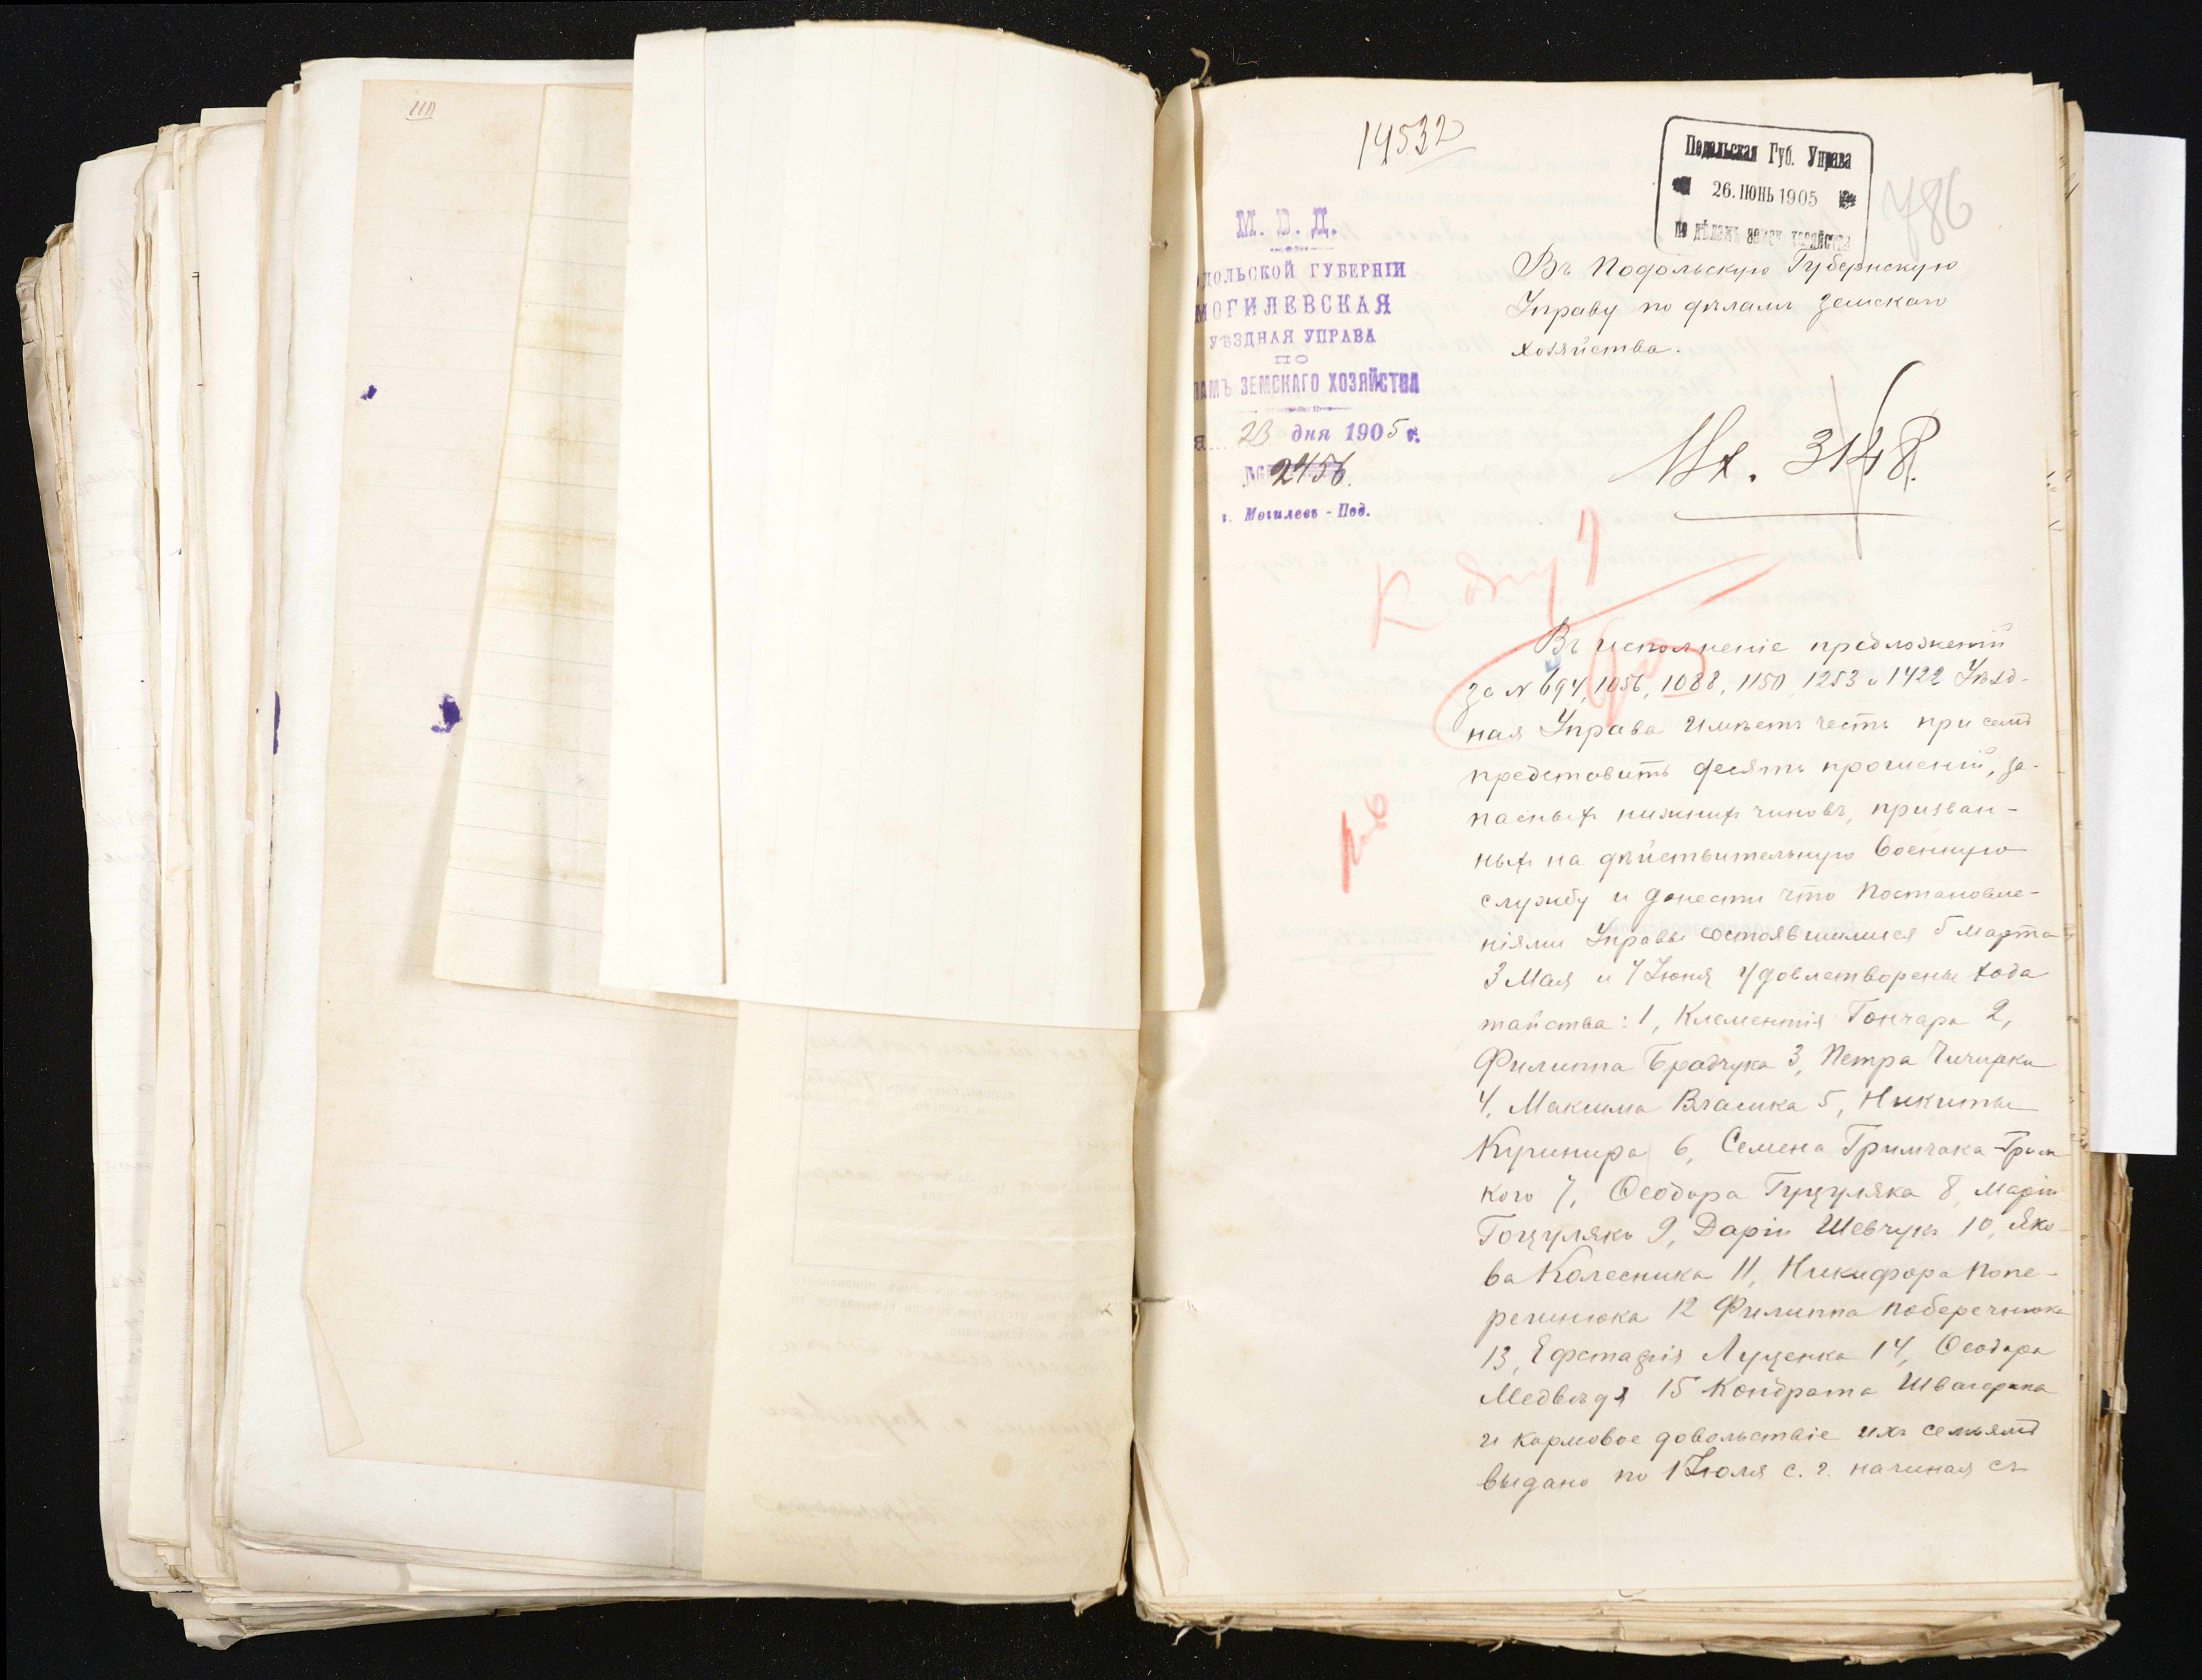 14532
Подольская Губ. Управа
26. ІЮНЬ 1905
по дѣламъ земск. хозяйства
786
М. В. Д.
ДОЛЬСКОЙ ГУБЕРНІИ
МОГИЛЕВСКАЯ
УѢЗДНАЯ УПРАВА
ПО
ЛАМЪ ЗЕМСКАГО ХОЗЯЙСТВА
я 23 дня 1905 г.
№ 2456.
г. Могилевъ-Под.
Въ Подольскую Губернскую
Управу по дѣламъ земскаго
хозяйства.
Вх. 3148.
К делу 7
Въ исполненіе предложеній
за № 694, 1056, 1088, 1150, 1253 и 1422 Уѣзд-
ная Управа имѣетъ честь при семъ
представить десять прошеній, за-
пасныхъ нижнихъ чиновъ, призван-
ныхъ на дѣйствительную военную
службу и донести что постановле-
ніями Управы состоявшимися 5 Марта
3 Мая и 7 Іюня удовлетворены хода
тайства: 1, Клементія Гончара 2,
Филиппа Бродчука 3, Петра Чичирки
4, Максима Власика 5, Никиты
Кушнира 6, Семена Гримчака-Гром
кого 7, Ѳеодора Гуцуляка 8, Маріи
Гоцулякъ 9, Даріи Шевчукъ 10, Яко-
ва Колесника 11, Никифора Попе-
решнюка 12 Филиппа Поберечнюка
13, Ефстафія Луценка 14, Ѳеодора
Медвѣдя 15 Кондрата
и кормовое довольствіе ихъ семьямъ
выдано по 1 Іюля с. г. начиная съ